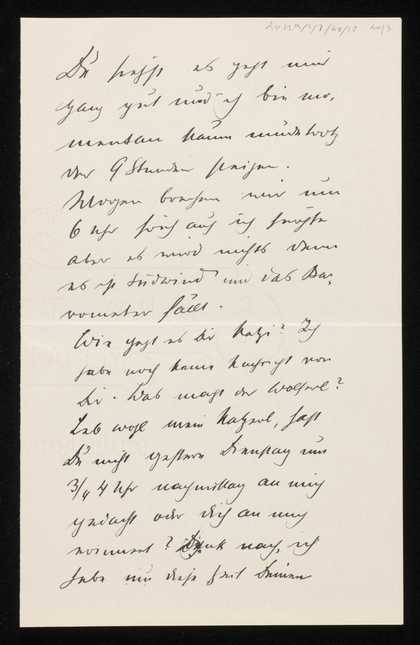 Du siehst es geht mir
ganz gut und ich bin mo-
mentan kaum müde trotz
der 9 Stunden steigen.
Morgen brechen wir um
6 Uhr früh auf, ich
aber es wird nichts denn
es ist Südwind und das Ba-
rometer fällt.
Wie geht es Dir Katzi? Ich
habe noch keine Nachricht von
Dir. Was macht der Wolferl?
Leb wohl mein Katzerl, hast
Du nicht gestern Dienstag um
3/4 4 Uhr nachmittag an mich
gedacht oder dich an mich
erinnert? Denk nach, ich
habe um diese Zeit Deinen